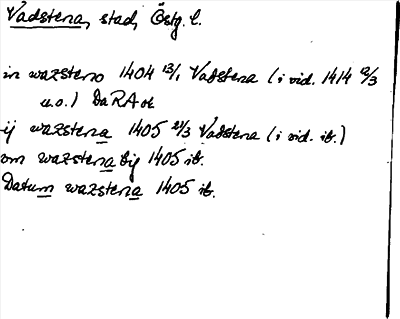 Vadstena, stad, Östg. l.
in wazsteno 1404 13/1 Vadstena (i vid. 1414 12/3
u.o.) DaRA or
ij wazstena 1405 21/3 Vadstena (i vid. ib.)
om wazstena by 1405 ib.
Datum wazstena 1405 ib.